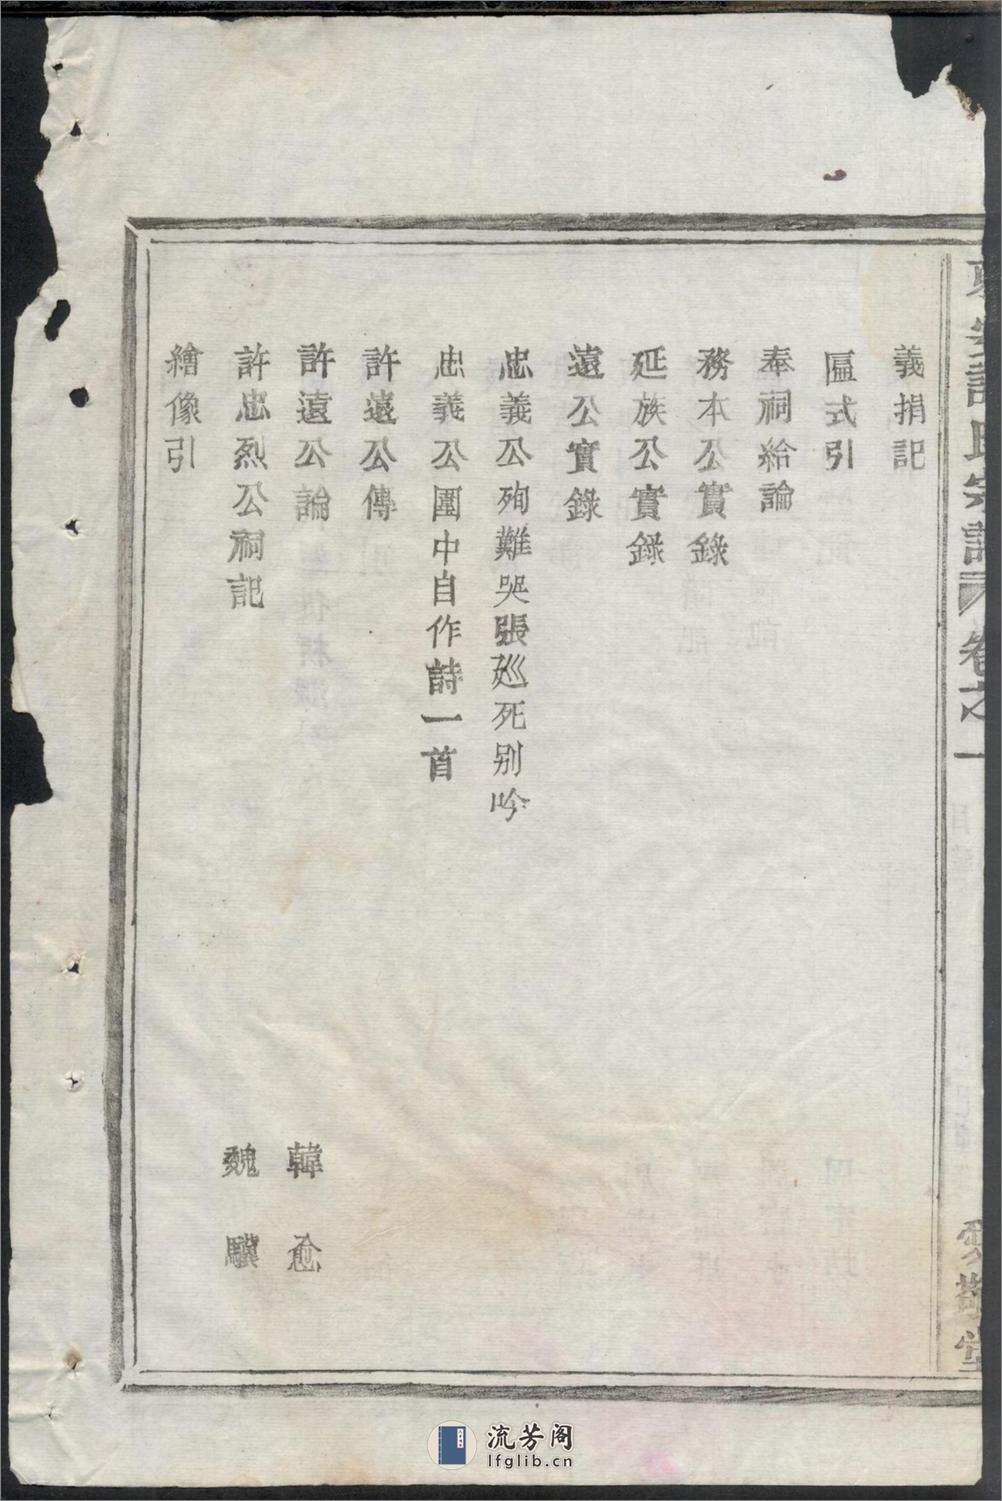 宗許氏宗譜 卷之一
敬堂
義捐記
匾式引
奉祠給諭
務本公實錄
延族公實錄
遠公實錄
忠義公殉難哭張廵死别吟
忠義公圍中自作詩一首
許遠公傳
許遠公論 韓愈
許忠烈公祠記 魏驥
繪像引
流芳阁
lfglib.cn